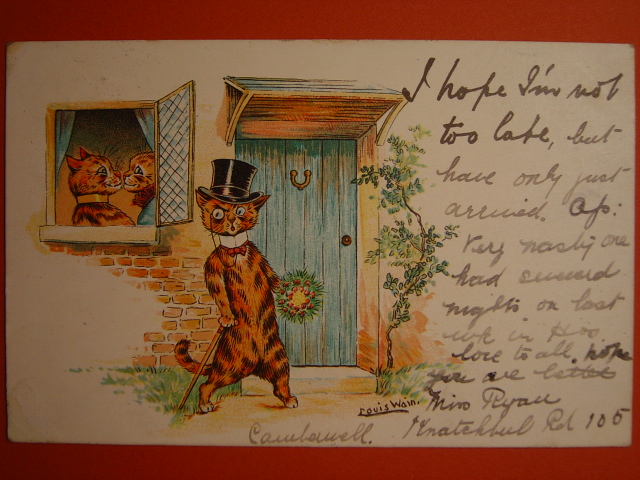 I hope I'm not
too late, but
have only just
arrived.
Very nasty one
had several
nights on last
love to all, hope
you are better
Miss Ryan
Louis Wain.
Camberwell. Knatchbull Rd 105